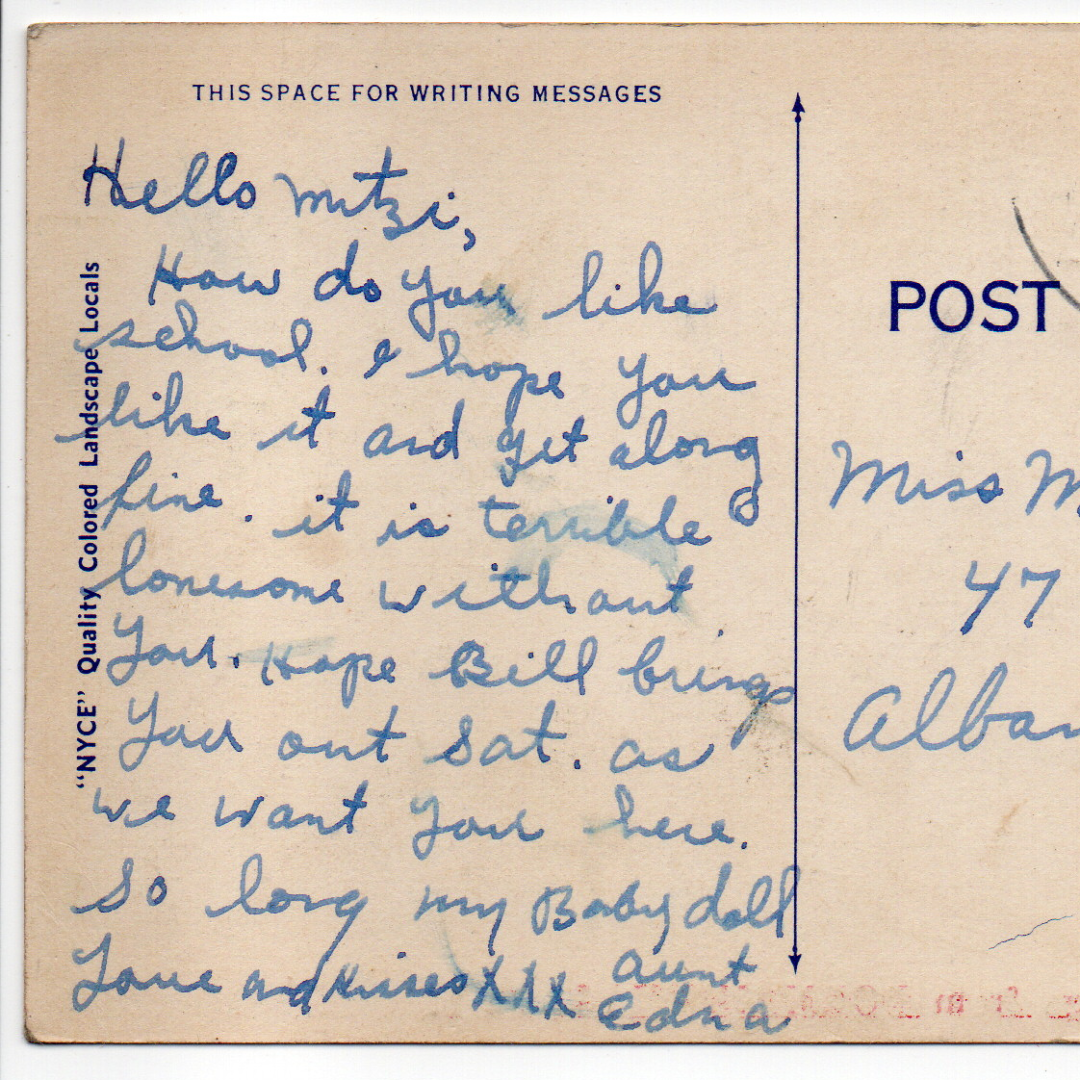 THIS SPACE FOR WRITING MESSAGES
Hello Mitzi,
How do you like
school. I hope you
like it and get along
fine. it is terrible
lonesome without
you. Hope Bill brings
you out Sat. as
we want you here.
So long my Baby doll
Love and Kisses XXX Aunt
Edna
"NYCE" Quality Colored Landscape Locals
POST
Miss M
47
Alban